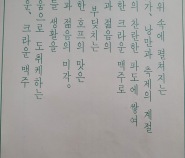 위 속에 펼쳐지는
가, 낭만과 축제의 계절
의 찬란한 파도에 쌓여
한 크라운 맥주로
과 젊음의
부딪치는
한 호프의 맛은
과 젊음의 미각.
들 생활을
음으로 도취케하는
은, 크라운 맥주